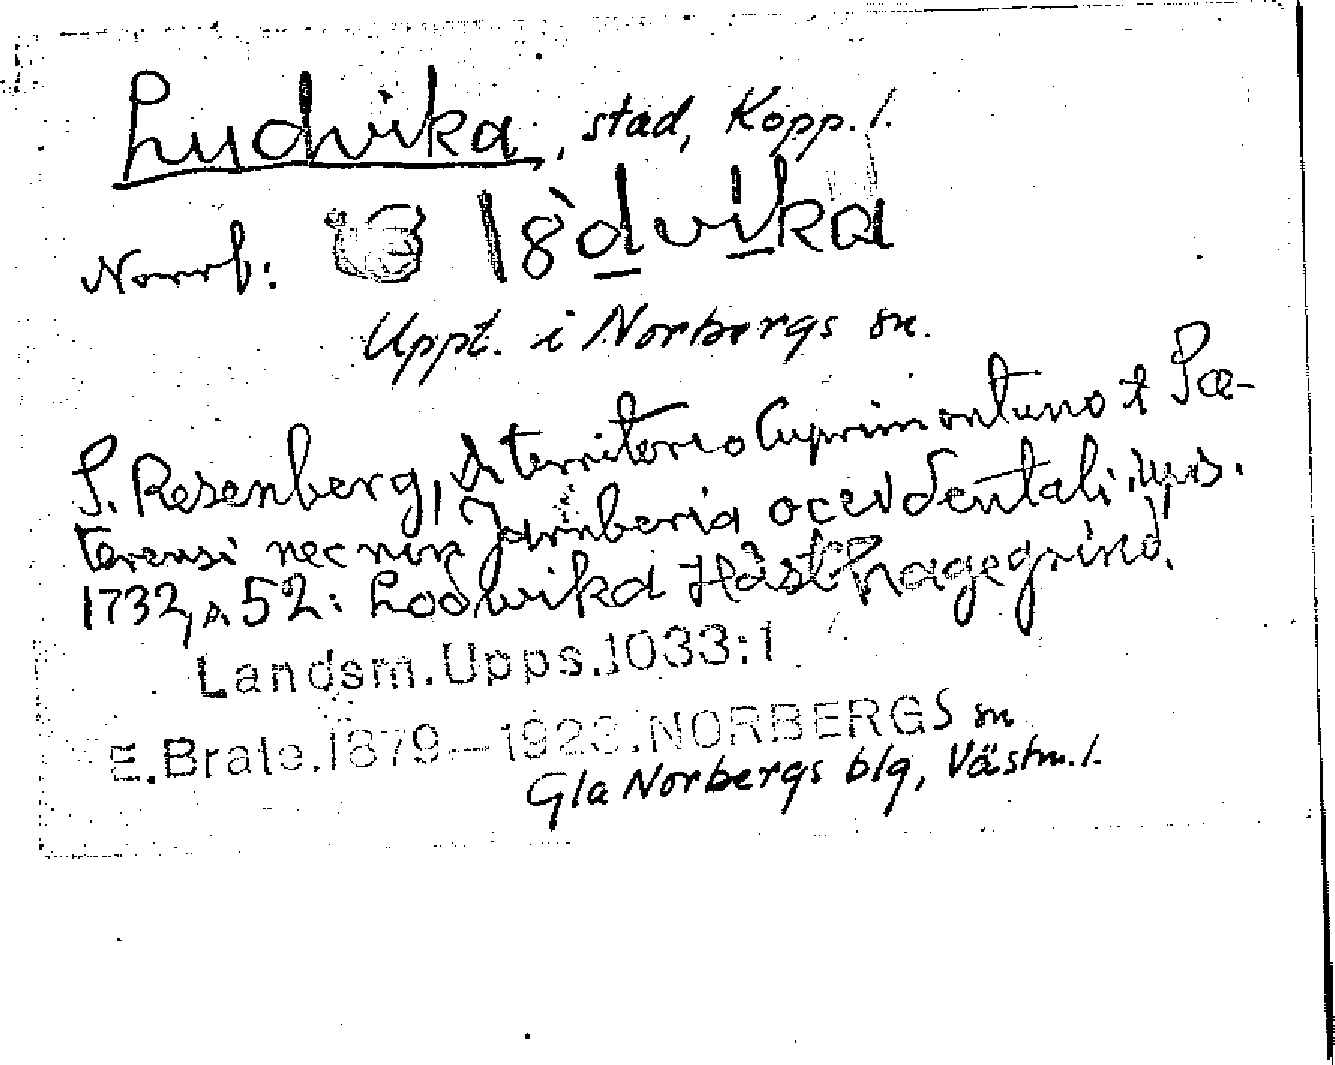 Ludvika, stad, Kopp. l.
Norrb: l8̀dvika
Uppt. i Norbergs sn.
S. Resenberg, de territorio Cuprimontano et Sæ-
terensi nec non Jarnberia occidentali, Ups.
1732, s. 52: Lodwika Hästhagegrind.
Landsm.Upps.1033:1
E.Brate.1879—1923.NORBERGS sn
Gla Norbergs blg, Västm. l.